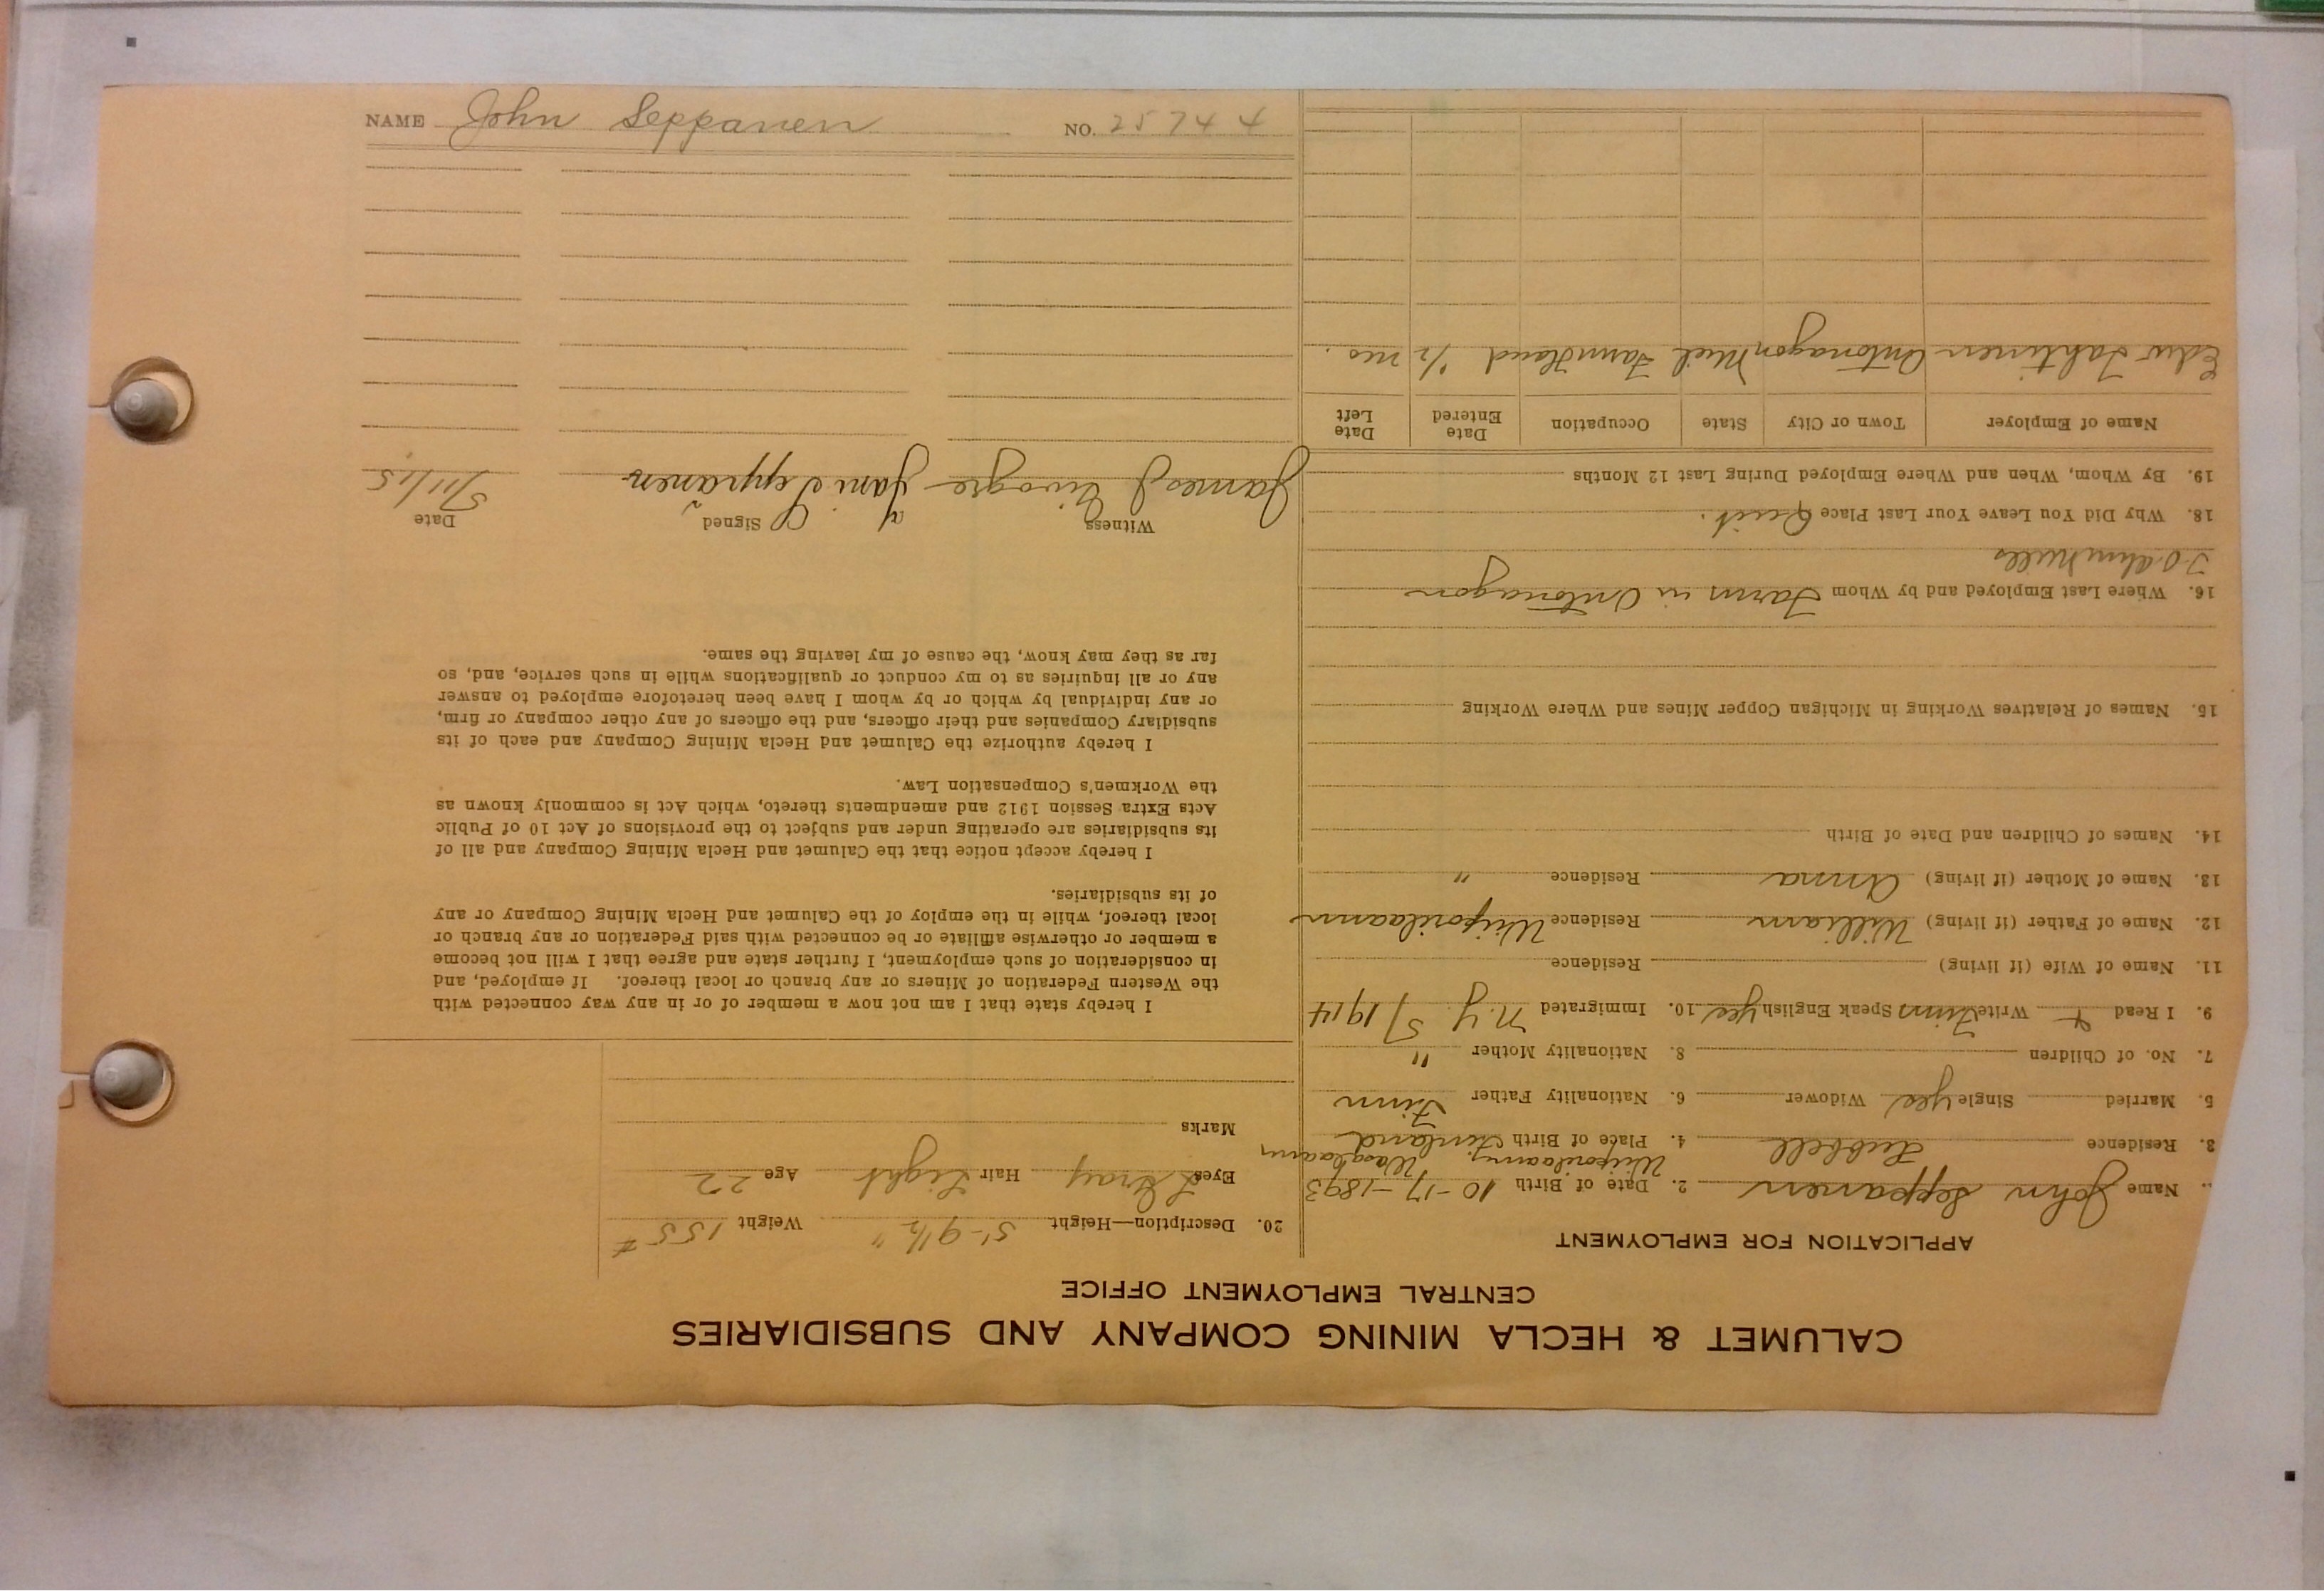 CALUMET & HECLA MINING COMPANY AND SUBSIDIARIES
CENTRAL EMPLOYMENT OFFICE
APPLICATION FOR EMPLOYMENT
Name John Seppanen 2. Date of Birth 10-17-1893
3. Residence Hubbell 4. Place of Birth Finland
5. Married Single Yes Widower 6. Nationality Father Finn
7. No. of Children 8. Nationality Mother "
9. I Read & Write Finn Speak English Yes 10. Immigrated N.Y. 5/1914
11. Name of Wife (if living) Residence
12. Name of Father (if living) William Residence
13. Name of Mother (if living) Anna Residence "
14. Names of Children and Date of Birth
15. Names of Relatives Working in Michigan Copper Mines and Where Working
16. Where Last Employed and by Whom Farm in Ontonagon
18. Why Did You Leave Your Last Place Quit.
19. By Whom, When and Where Employed During Last 12 Months
Name of Employer Town or City State Occupation Date Entered Date Left
Ontonagon Mich Farm Hand 1/2 mo.
20. Description—Height 5'-9 1/2" Weight 155 #
Eyes Gray Hair Light Age 22
Marks
I hereby state that I am not now a member of or in any way connected with
the Western Federation of Miners or any branch or local thereof. If employed, and
in consideration of such employment, I further state and agree that I will not become
a member or otherwise affiliate or be connected with said Federation or any branch or
local thereof, while in the employ of the Calumet and Hecla Mining Company or any
of its subsidiaries.
I hereby accept notice that the Calumet and Hecla Mining Company and all of
its subsidiaries are operating under and subject to the provisions of Act 10 of Public
Acts Extra Session 1912 and amendments thereto, which Act is commonly known as
the Workmen's Compensation Law.
I hereby authorize the Calumet and Hecla Mining Company and each of its
subsidiary Companies and their officers, and the officers of any other company or firm,
or any individual by which or by whom I have been heretofore employed to answer
any or all inquiries as to my conduct or qualifications while in such service, and, so
far as they may know, the cause of my leaving the same.
Witness Signed Date
James J. Jani Seppanen 5/11/15
NAME John Seppanen NO. 25744